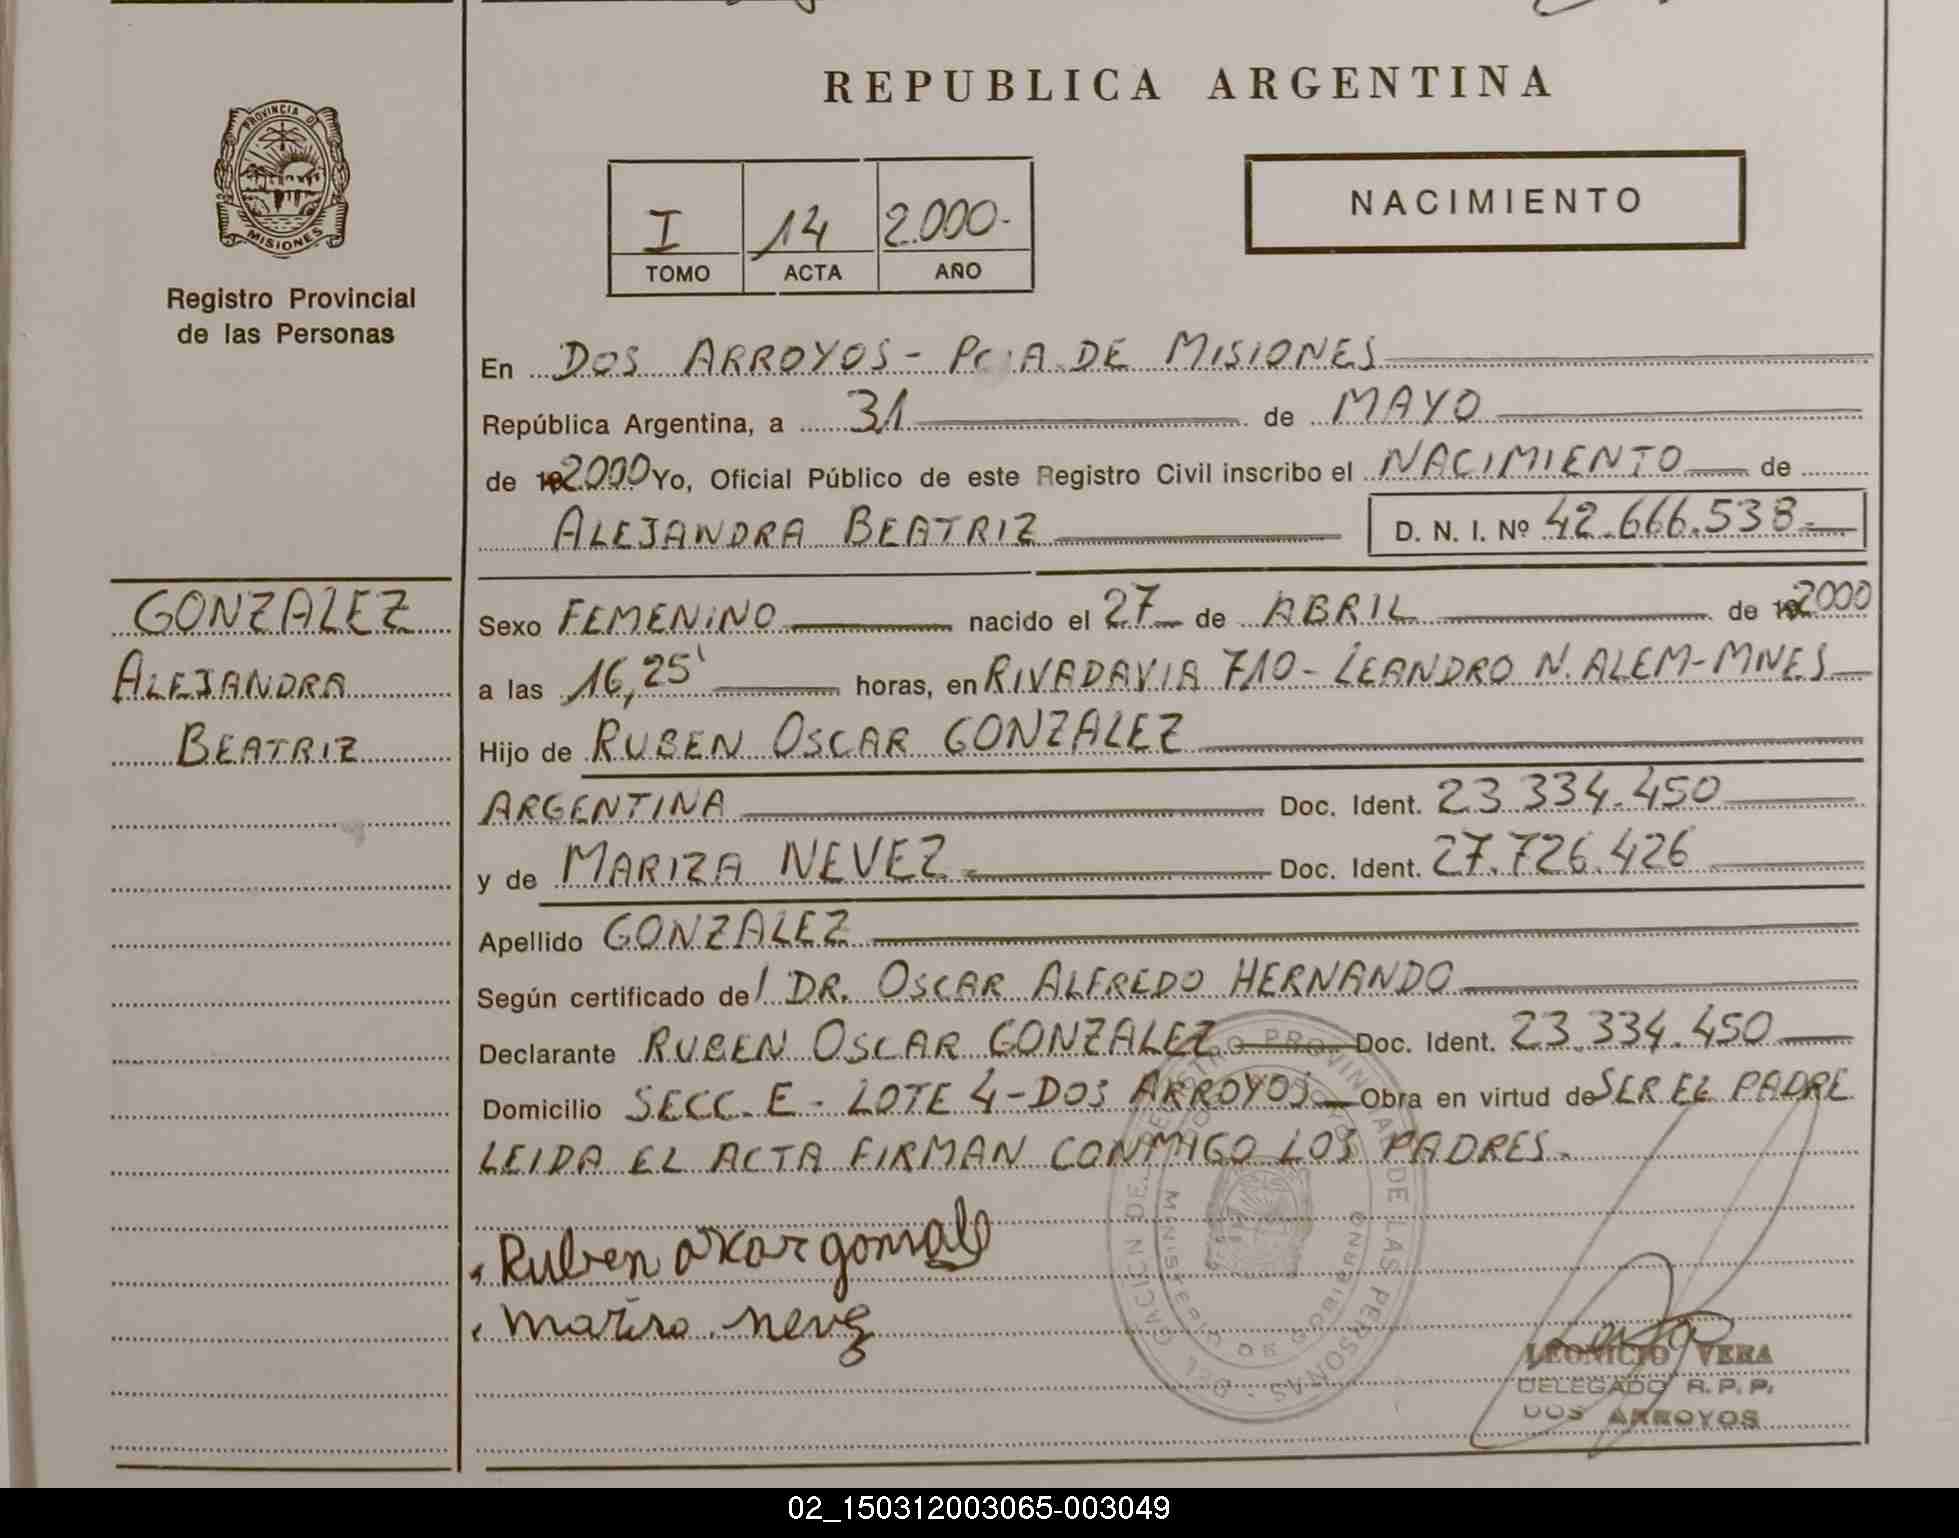 REPUBLICA ARGENTINA
PROVINCIA D
MISIONES
Registro Provincial
de las Personas
I 14 2.000-
TOMO ACTA AÑO
NACIMIENTO
En DOS ARROYOS - PCIA DE MISIONES
República Argentina, a 31 de MAYO
de 2000 Yo, Oficial Público de este Registro Civil inscribo el NACIMIENTO de
ALEJANDRA BEATRIZ D. N. I. Nº 42.666.538-
GONZALEZ
ALEJANDRA
BEATRIZ
Sexo FEMENINO nacido el 27 de ABRIL de 2000
a las 16,25' horas, en RIVADAVIA 710 - LEANDRO N. ALEM - MNES
Hijo de RUBEN OSCAR GONZALEZ
ARGENTINA Doc. Ident. 23.334.450
y de MARIZA NEVEZ Doc. Ident. 27.726.426
Apellido GONZALEZ
Según certificado de/ DR. OSCAR ALFREDO HERNANDO
Declarante RUBEN OSCAR GONZALEZ Doc. Ident. 23.334.450
Domicilio SECC. E - LOTE 4 - DOS ARROYOS Obra en virtud de SER EL PADRE
LEIDA EL ACTA FIRMAN CONMIGO LOS PADRES.
Ruben
LEONICIO VERA
DELEGADO R. P. P.
DOS ARROYOS
02_150312003065-003049